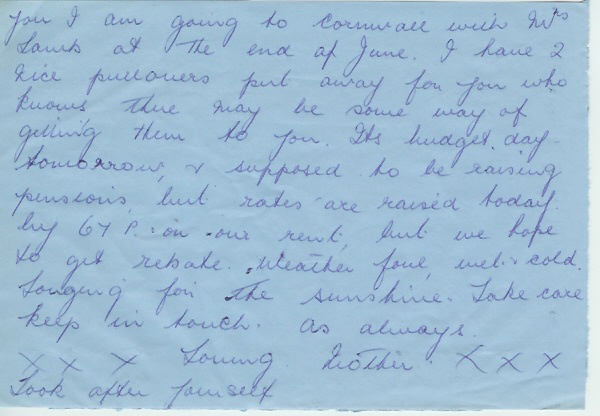 you I am going to cornwall with Mrs
Lamb at the end of June. I have 2
nice pullovers put away for you who
knows there may be some way of
getting them to you. Its budget day
tomorrow, & supposed to be raising
pensions, but rates are raised today.
by 67 P. on our rent, but we hope
to get rebate. Weather foul, wet & cold.
Longing for the sunshine. Take care
keep in touch. as always.
X X X Loving Mother. X X X
Look after yourself